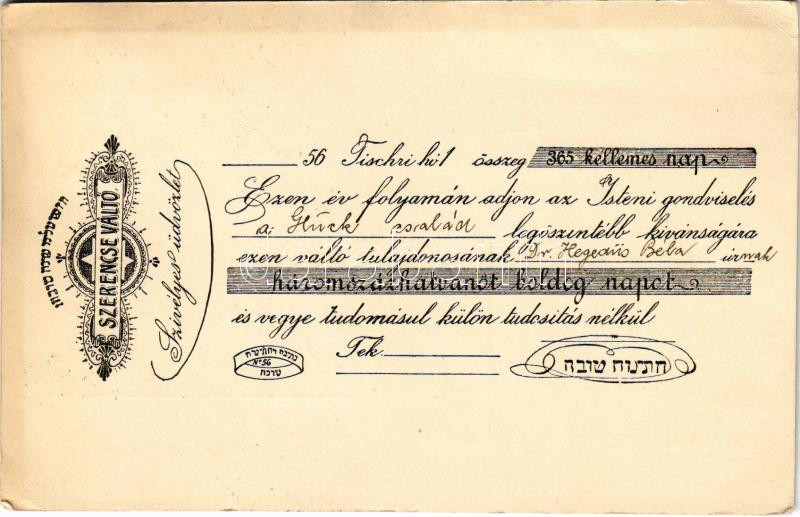 SZERENCSE VÁLTÓ
Szivélyes üdvözlet
56 Tischri hó 1 összeg 365 kellemes nap
Ezen év folyamán adjon az Isteni gondviselés
a Glück család legöszintébb kivánságára
ezen váltó tulajdonosának Dr. Hegedüs Béla úrnak
háromszázhatvanöt boldog napot
és vegye tudomásul külön tudositás nélkül
Tek.
No 56
חתימה טובה